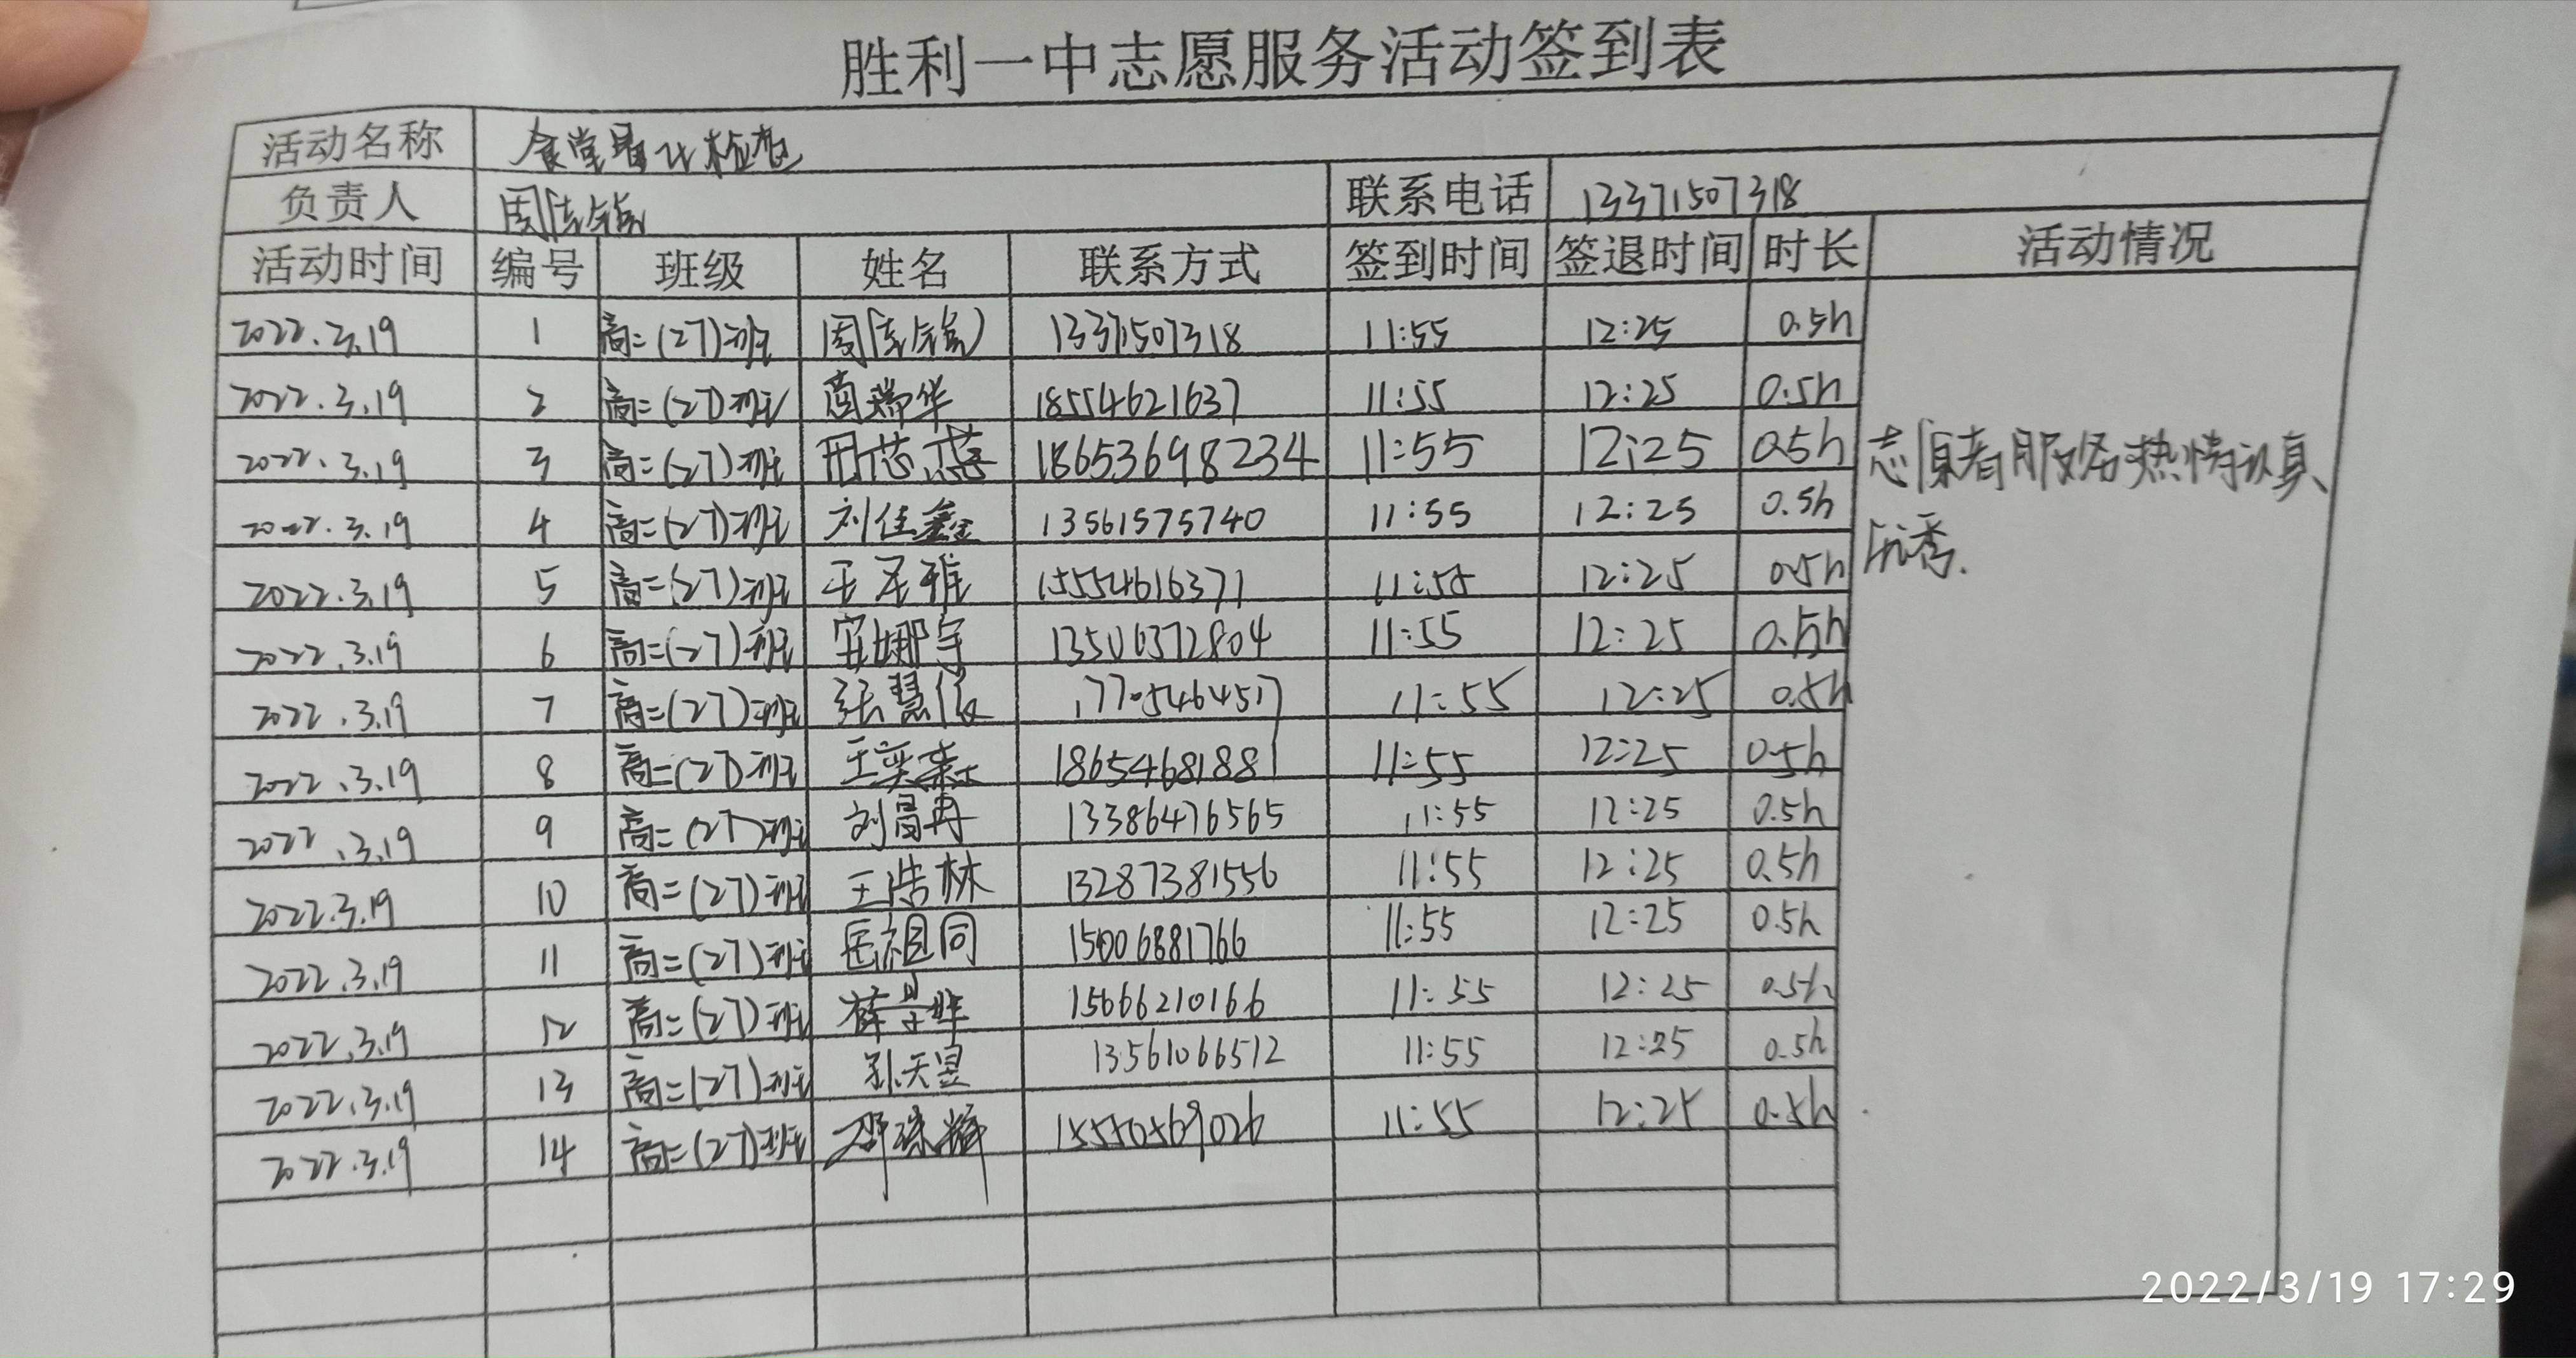 胜利一中志愿服务活动签到表
活动名称 食堂 检查
负责人 联系电话 13371507318
活动时间 编号 班级 姓名 联系方式 签到时间 签退时间 时长 活动情况
2022.3.19 1 高二(27)班 13371507318 11:55 12:25 0.5h
2022.3.19 2 高二(27)班 18554621637 11:55 12:25 0.5h
2022.3.19 3 高二(27)班 18653698234 11:55 12:25 0.5h 志愿者服务热情认真、
2022.3.19 4 高二(27)班 刘佳鑫 13561575740 11:55 12:25 0.5h 优秀.
2022.3.19 5 高二(27)班 王圣雅 15554616371 11:55 12:25 0.5h
2022.3.19 6 高二(27)班 13506372804 11:55 12:25 0.5h
2022.3.19 7 高二(27)班 17705464517 11:55 12:25 0.5h
2022.3.19 8 高二(27)班 18654681881 11:55 12:25 0.5h
2022.3.19 9 高二(27)班 刘昌冉 13386476565 11:55 12:25 0.5h
2022.3.19 10 高二(27)班 王浩林 13287381556 11:55 12:25 0.5h
2022.3.19 11 高二(27)班 岳祖同 15006881766 11:55 12:25 0.5h
2022.3.19 12 高二(27)班 15666210166 11:55 12:25 0.5h
2022.3.19 13 高二(27)班 孙天昱 13561066512 11:55 12:25 0.5h
2022.3.19 14 高二(27)班 15550569026 11:55 12:25 0.5h
2022/3/19 17:29